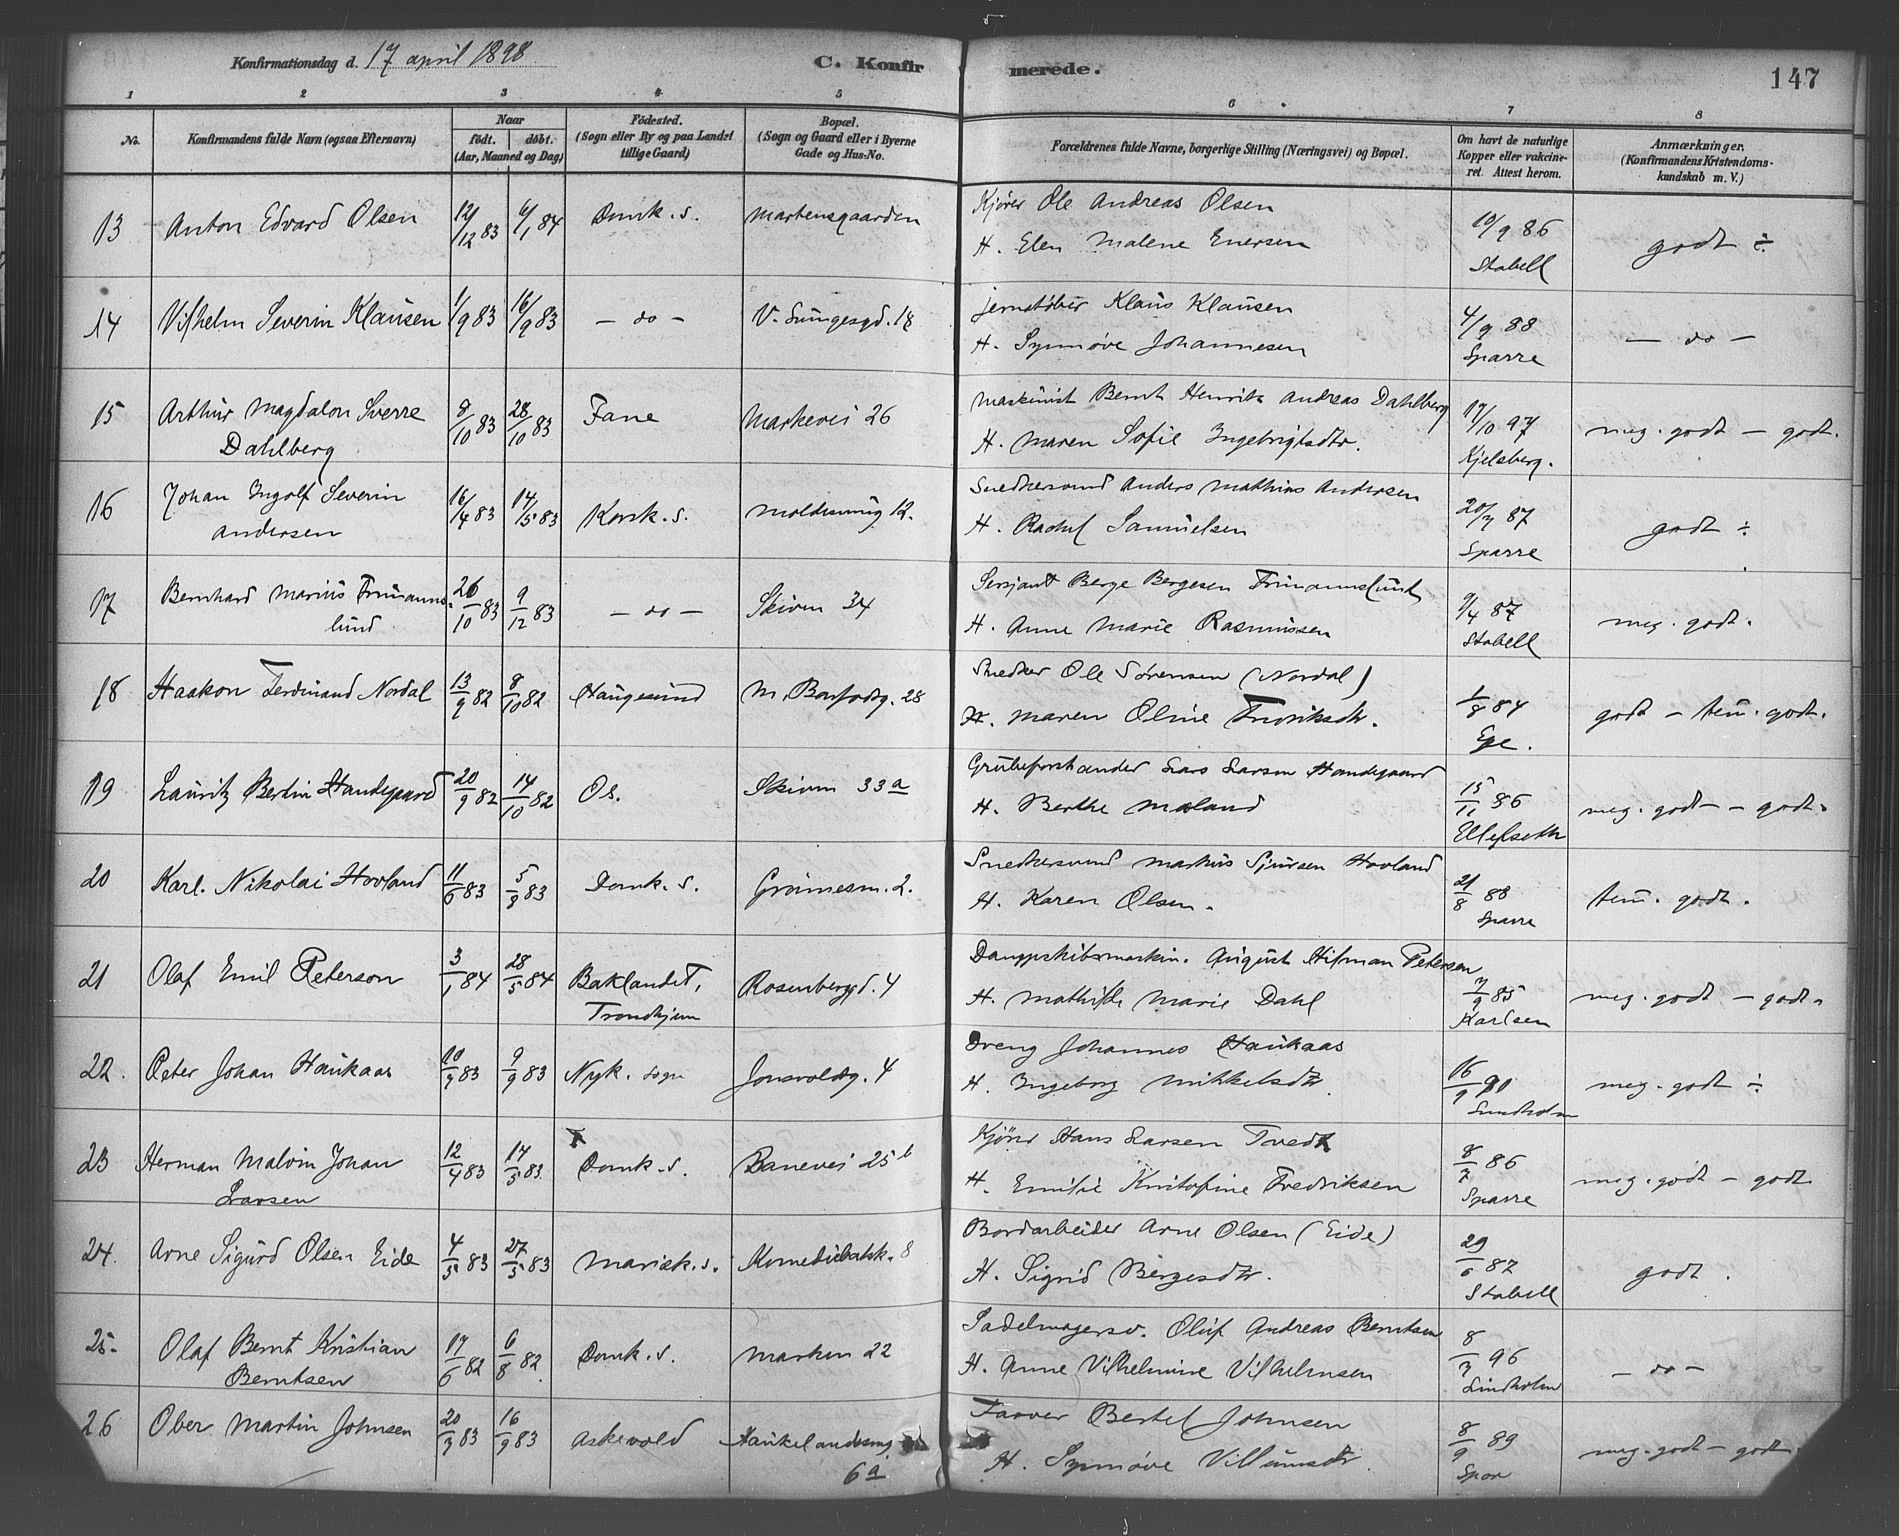 Konfirmationsdag d. 17 april 1898
C. Konfirmerede.
147
1 2 3 4 5 6 7 8
No.
Konfirmandens fulde Navn (ogsaa Efternavn)
Naar
födt. döbt.
(Aar, Maaned og Dag)
Födested.
(Sogn eller By og paa Landet
tillige Gaard)
Bopæl.
(Sogn og Gaard eller i Byerne
Gade og Hus-No.
Forældrenes fulde Navne, borgerlige Stilling (Næringsvei) og Bopæl.
Om havt de naturlige
Kopper eller vakcine-
ret. Attest herom.
Anmærkninger.
(Konfirmandens Kristendoms-
kundskab m. V.)
13 Anton Edvard Olsen 12/12 83 6/1 84 Domk. s. Martensgaarden Kjører Ole Andreas Olsen 10/9 86 godt ÷
H. Elen Malene Enersen Stabell
14 Vilhelm Severin Klausen 1/9 83 16/9 83 – do – 18 jernstøber Klaus Klausen 4/9 88 – do –
H. Synnøve Johannesen Sparre
15 Arthur Magdalon Sverre 8/10 83 28/10 83 Fane Markevei 26 Maskinist Bernt Henrik Andreas Dahlberg 17/10 97 meg. godt – godt.
Dahlberg H. Maren Sofie Ingebrigtsdtr. Kjelsberg.
16 Johan Ingolf Severin 16/4 83 14/5 83 Korsk. s. 12. Snedkersvend Anders Mathias Andersen 20/7 87 godt ÷
Andersen H. Rachel Samuelsen Sparre
17 Bernhard Marius Frimanns- 26/10 83 9/12 83 – do – Skiven 34 Sersjant Berge Bergesen Frimannslund 9/4 87 meg. godt.
lund H. Anne Marie Rasmussen Stabell
18 Haakon Ferdinand Nordal 13/9 82 8/10 82 Haugesund 28 Snedker Ole Sørensen (Nordal) 1/8 84 godt – tem. godt.
H. Maren Oline Fredriksdtr. Ege.
19 Lauritz Bertin Handegaard 20/9 82 14/10 82 Os. Skiven 33 a Grubeforstander Lars Larsen Handegaard 15/11 86 meg. godt – godt.
H. Berthe Maland Ellefseth
20 Karl. Nikolai Hovland 11/6 83 5/8 83 Domk. s. 2. Snedkersvend Markus Sjursen Hovland 21/8 88 tem. godt.
H. Karen Olsen. Sparre
21 Olaf Emil Peterson 3/1 84 28/5 84 Baklandet, Rosenbergd. 4 Dampskibsmaskin. August Hifman Petersen 7/9 85 meg. godt – godt.
Trondhjem H. Mathilde Marie Dahl Karlsen
22. Peter Johan Haukaas 10/7 83 9/9 83 Nyk. sogn Jonsvoldsg. 4 Dreng Johannes Haukaas 16/9 90 meg. godt ÷
H. Ingeborg Mikkelsdtr. Lindholm
23 Herman Malvin Johan 12/4 83 14/5 83 Domk. s. Banevei 25 b Kjører Hans Larsen Tvedt 8/7 86 meg. godt – godt.
Larsen H. Emilie Kristofine Fredriksen Sparre
24. Arne Sigurd Olsen Eide 4/5 83 27/5 83 Mariak. s. Komediebakk. 8 Bordarbeider Arne Olsen (Eide) 29/6 87 godt.
H. Sigrid Børgesdtr. Stabell
25. Olaf Bernt Kristian 17/6 82 6/8 82 Domk. s. Marken 22 Sadelmagersv. Oluf Andreas Berntsen 8/3 96 – do –
Berntsen H. Anne Vilhelmine Vilhelmsen Lindholm
26 Ober Martin Johnsen 20/7 83 16/9 83 Askevold Haukelandsvei Farver Bertel Johnsen 8/9 89 meg. godt – godt.
6 a H. Synnøve Villumsdtr. Spar